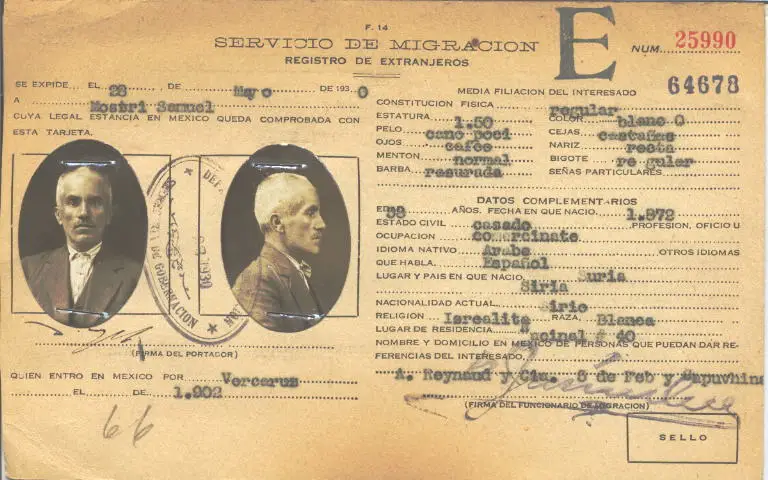 F. 14
SERVICIO DE MIGRACION
REGISTRO DE EXTRANJEROS
E
NUM. 25990
64678
SE EXPIDE EL 28 DE Mayo DE 1930
A Mostri Samuel
CUYA LEGAL ESTANCIA EN MEXICO QUEDA COMPROBADA CON
ESTA TARJETA.
GOBERNACION
(FIRMA DEL PORTADOR)
QUIEN ENTRO EN MEXICO POR Vercaruz
EL DE 1.902
66
MEDIA FILIACION DEL INTERESADO
CONSTITUCION FISICA regular
ESTATURA 1.50 COLOR blanc O
PELO cano poci CEJAS castañas
OJOS cafce NARIZ recta
MENTON normal BIGOTE re gular
BARBA resurada SEÑAS PARTICULARES
DATOS COMPLEMENTARIOS
ED 58 AÑOS. FECHA EN QUE NACIO. 1.872
ESTADO CIVIL casado PROFESION, OFICIO U
OCUPACION comercinate
IDIOMA NATIVO Arabe OTROS IDIOMAS
QUE HABLA. Español
LUGAR Y PAIS EN QUE NACIO. Suria
Siria
NACIONALIDAD ACTUAL. Sirio
RELIGION Isrealita RAZA. Blanca
LUGAR DE RESIDENCIA # 40
NOMBRE Y DOMICILIO EN MEXICO DE PERSONAS QUE PUEDAN DAR RE-
FERENCIAS DEL INTERESADO.
A. Reynaud y Cia. 5 de Feb y
(FIRMA DEL FUNCIONARIO DE MIGRACION)
SELLO